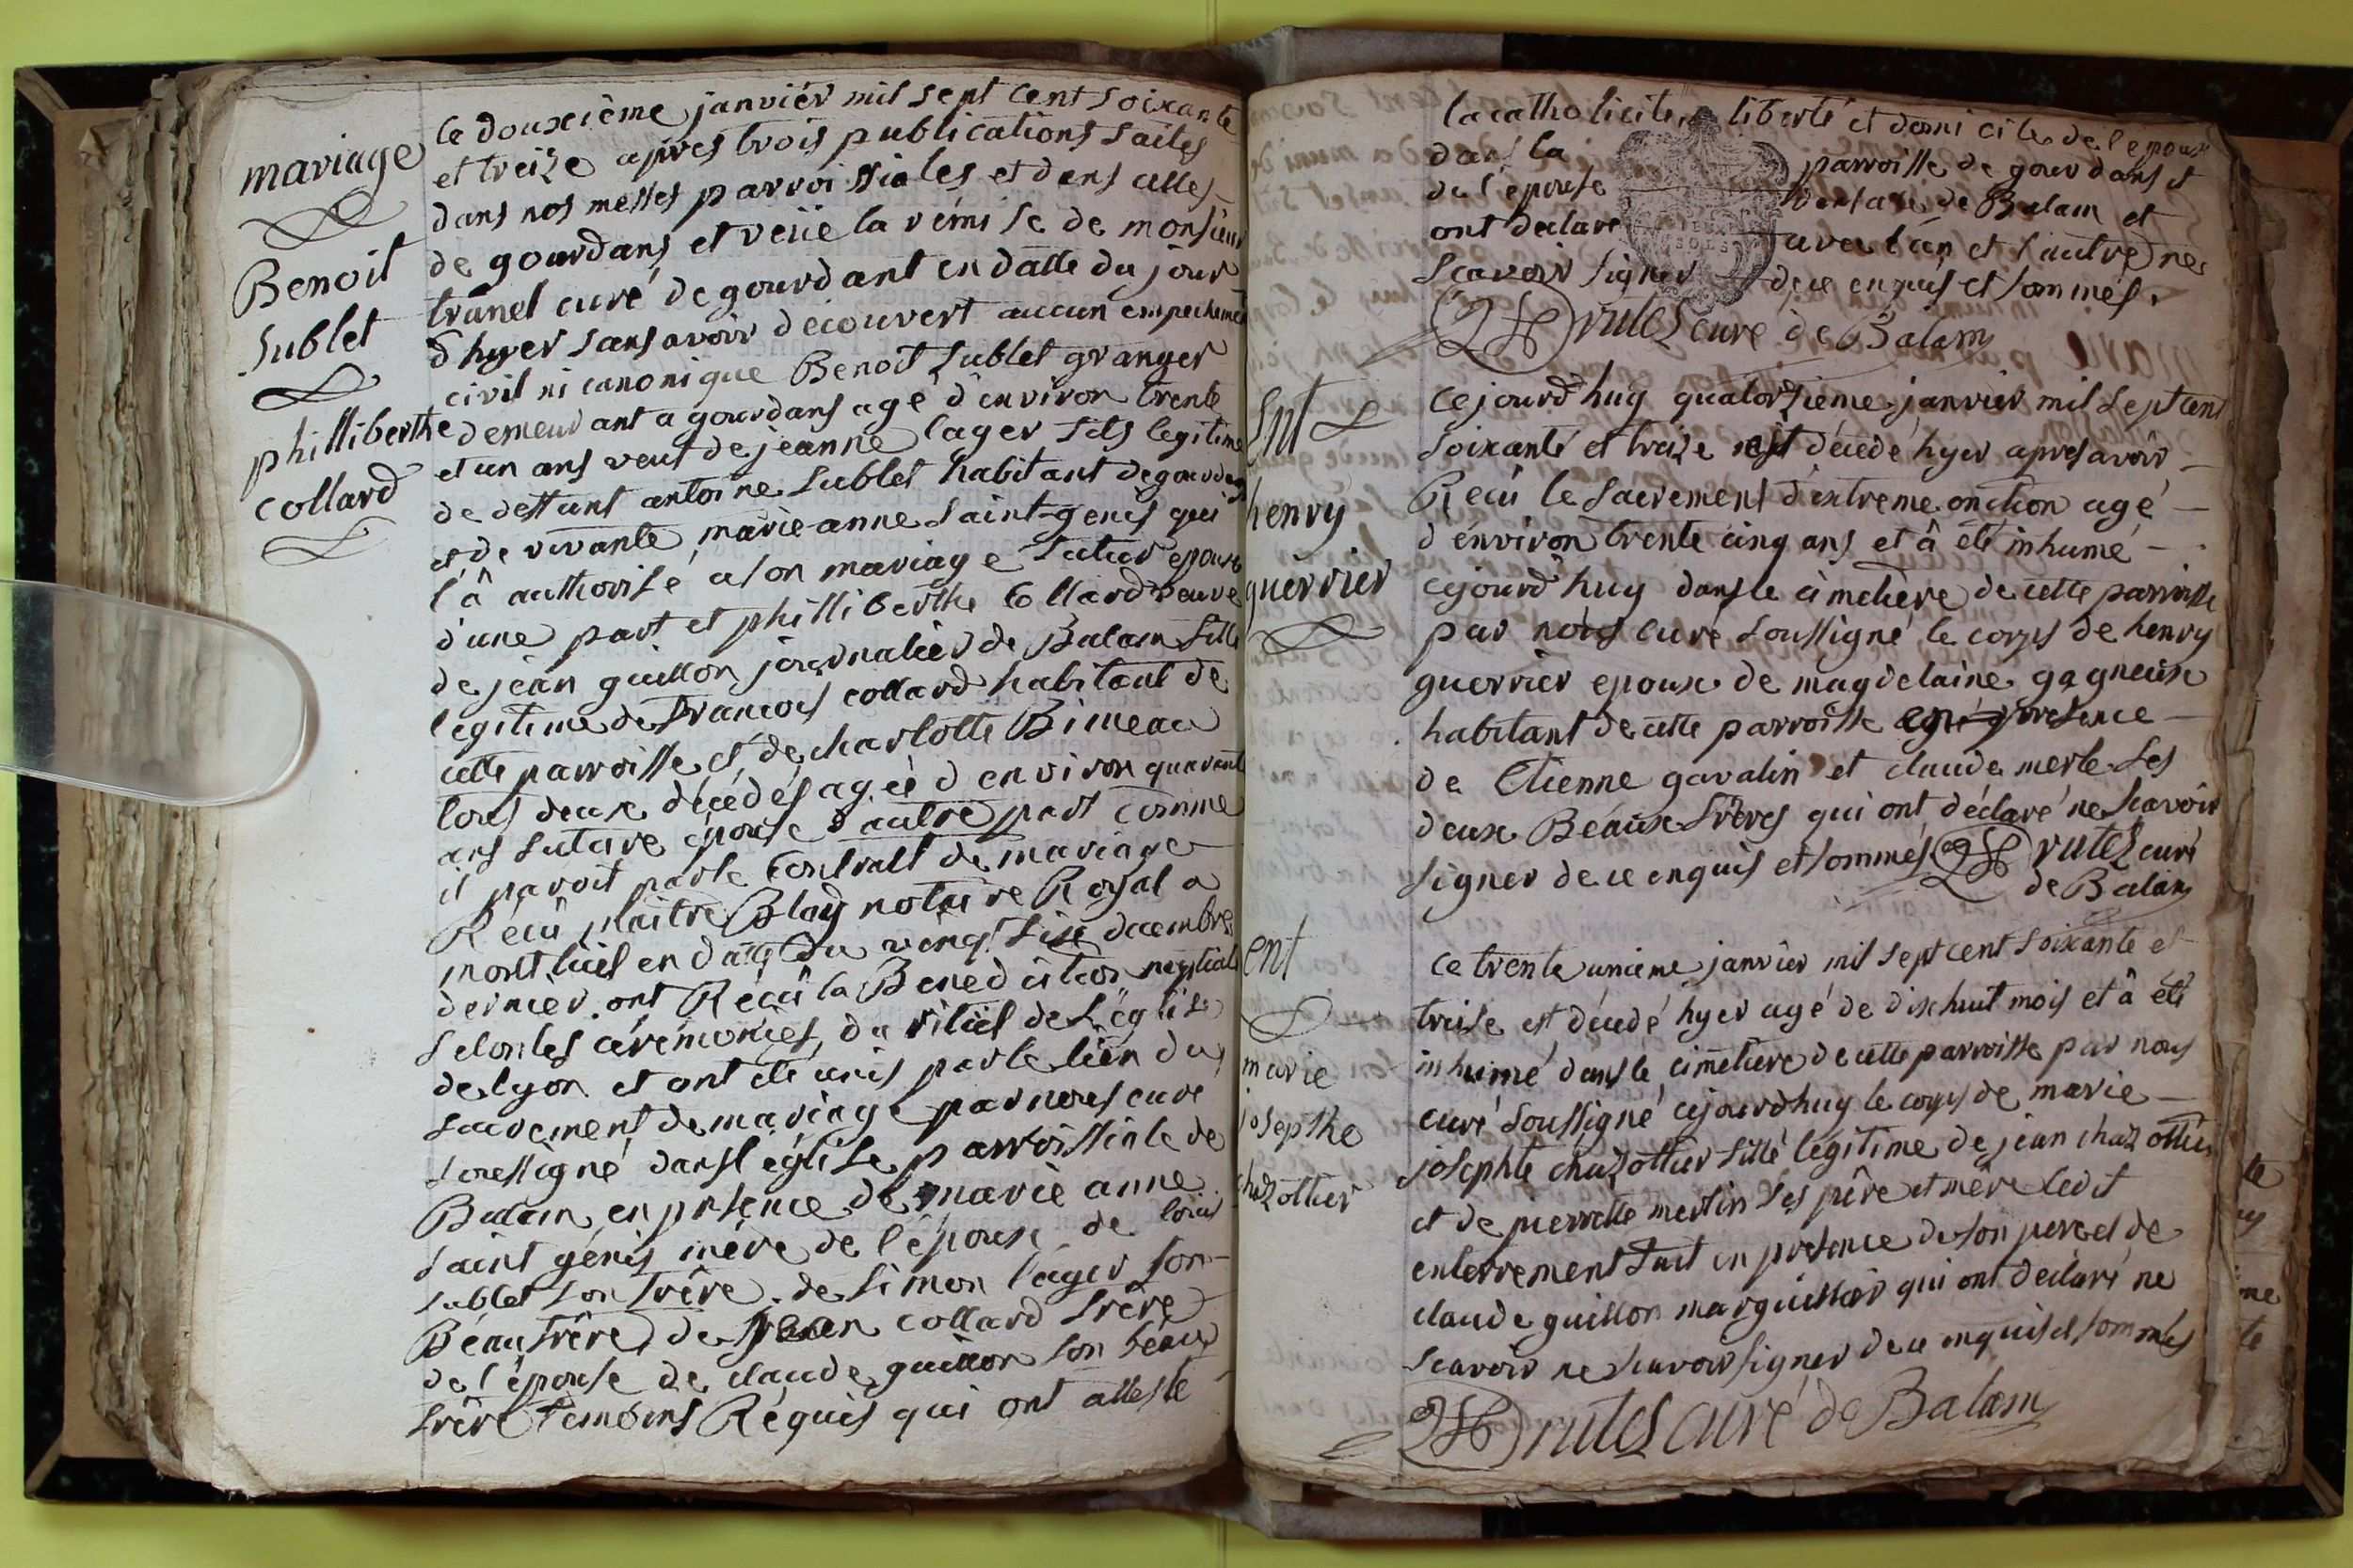 mariage
Benoit
Sublet
philliberthe
collard
le douxième janviér mil sept cent soixante
et treize apres trois publications faites
dans nos messes parroissiales et dans celles
de gourdans et veüe la rémise de monsieur
curé de gourdant en datte du jour
d'hyer sans avoir découvert aucun empechement
civil ni canonique Benoit Sublet granger
demeurant a gourdans agé d'environ trente
et un ans veuf de jeanne lager fils legitime
de deffunt antoine Sublet habitant de gourdans
et de vivante marie anne Saint-genis qui
l'â authorisé a son mariage futur epoux
d'une part et philliberthe Collard veuve
de jean guillon journalier de Balam fille
legitime de francois collard habitant de
cette parroisse et de charlotte Bimeau
tous deux décédés agée d'environ quarante
ans future épouse d'autre part comme
il paroit par le Contralt de mariage
Réçû maitre Blay notaire Royal a
montluel en datte du vingt six decembre
dernier ont Réçû la Bénédiction nuptiale
selon les cérémonies du ritüel de L'église
de lyon et ont été unis par le lien du
sacrement de mariage par nous curé
soussigné dans l'église parroissiale de
Balam en présence de marie anne
saint génis mère de l'époux de loüis
sublet son frère de simon lager son
Béau frère de jean collard frère
de l'épouse de claude guillon son beau
frère témoins Réquis qui ont attesté
la catholicité liberté et domicile de l'epoux
dans la parroisse de gourdans et
de l'épouse dans celle de Balam et
ont déclaré avec l'un et l'autre ne
scavoir signer de ce enquis et sommés.
rutes curé de Balam
Ent
henry
guérrier
Cejourd'huy quatorzieme janvier mil sept cent
soixante et treize est décédé hyer apres avoir
Reçû le sacrement d'extreme onction agé
d'environ trente cinq ans et â été inhumé
cejourd'huy dans le cimetière de cette parroisse
par nous curé soussigné le corps de henry
guerrier epoux de magdelaine gagneux
habitant de cette parroisse presence
de Etienne gavalin et claude merle ses
deux Béaux frères qui ont déclaré ne scavoir
signer de ce enquis et sommés rutes curé
de Balam
ent
marie
josepthe
chazottier
Ce trente unieme janvier mil sept cent soixante et
treise est décédé hyer agé de dixhuit mois et â été
inhumé dans le cimetiere de cette parroisse par nous
curé soussigné cejourdhuy le corps de marie
josephte chazottier fille légitime de jean chazottier
et de pierrette mertin ses pére et mére ledit
enterrement fait en présence de son pere et de
claude guillon marguillier qui ont déclaré ne
scavoir ne scavoir signer de ce enquis et sommés
rutes curé de Balam